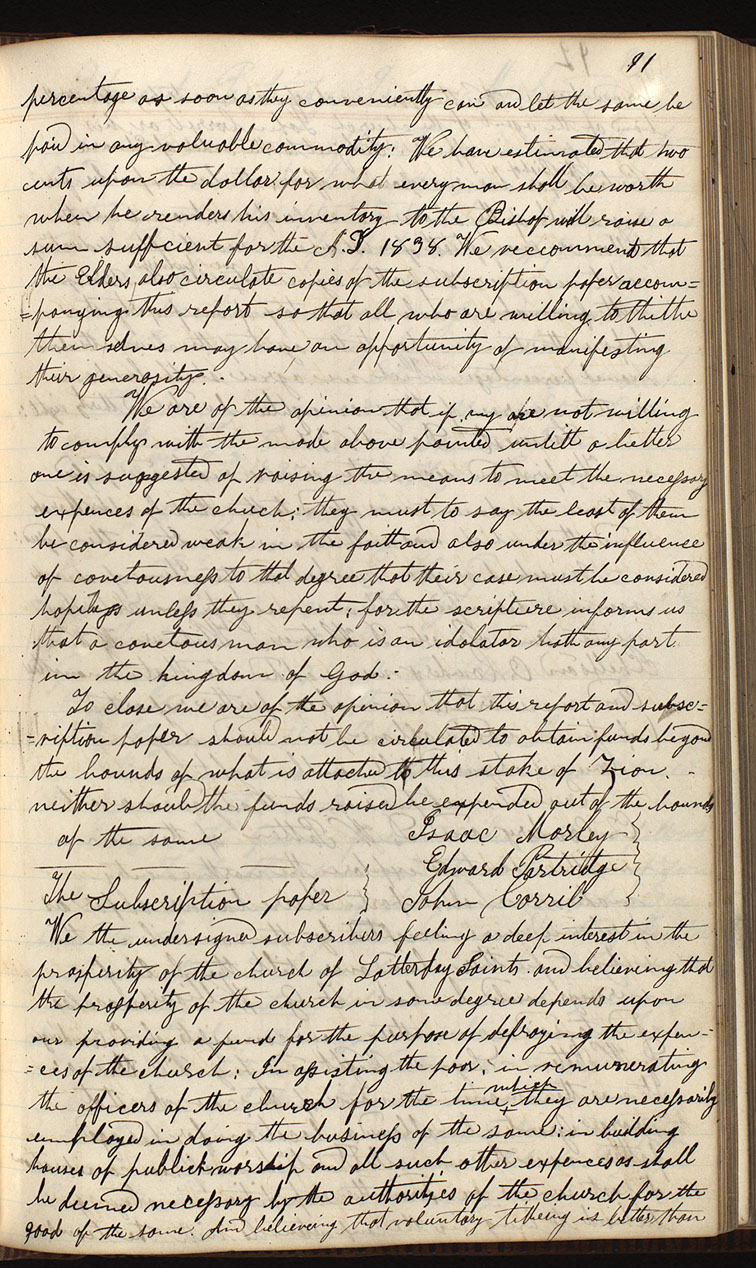 91
percentage as soon as they conveniently can and let the same be
paid in any valuable commodity: We have estimated that two
cents upon the dollar for what every man shall be worth
when he renders his inventory to the Bishop will raise a
sum sufficient for the A.D. 1838. We reccommend that
the Elders also circulate copies of the subscription paper accom=
=panying this report so that all who are willing to thithe
themselves may have an opportunity of manifesting
their generosity.
We are of the opinion that if any are not willing
to comply with the mode above pointed untill a better
one is suggested of raising the means to meet the necessary
expences of the church; they must to say the least of them
be considered weak in the faith and also under the influence
of covetousness to that degree that their case must be considered
hopeless unless they repent; for the scriptiere informs us
that a covetous man who is an idolator hath any part
inn the kingdom of God.
To close we are of the opinion that this report and subsc=
=ription paper should not be circulated to obtain funds beyond
the bounds of what is attached to this stake of Zion.
neither should the funds raised be expended out of the bounds
of the same
Isaac Morley
Edward Partridge
The Subscription paper } John Corril
We the undersigned subscribers feeling a deep interest in the
prosperity of the church of Latterday Saints and believing that
the prosperity of the church in some degree depends upon
our providing a fund for the purpose of defraying the expen=
=ces of the church; In assisting the poor; in remunerating
the officers of the church for the time which they are necessarily
employed in doing the business of the same: in building
houses of publick worship and all such other expences as shall
be deemed necessary by the authorities of the church for the
good of the same. And believing that voluntary titheing is better than